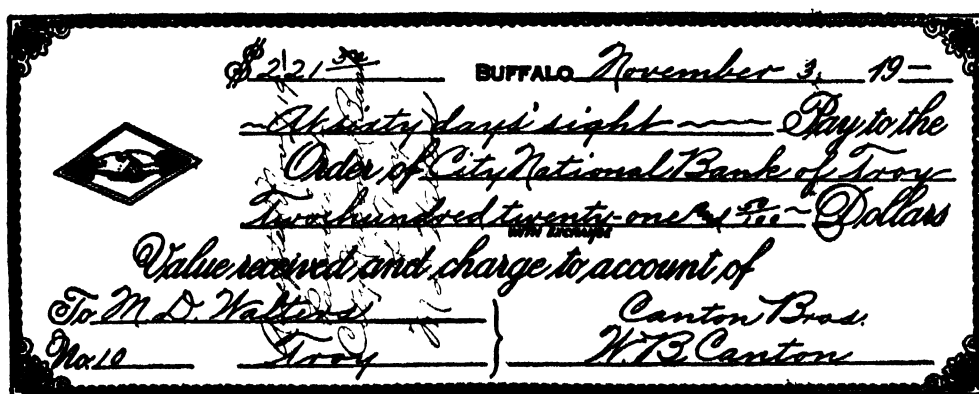 $221 50/100 BUFFALO November 3, 19—
At sixty days' sight Pay to the
Order of City National Bank of Troy
Two hundred twenty-one and 50/100 Dollars
With Exchange
Value received and charge to account of
To M. D. Walters Canton Bros.
No. 10 Troy W. B. Canton